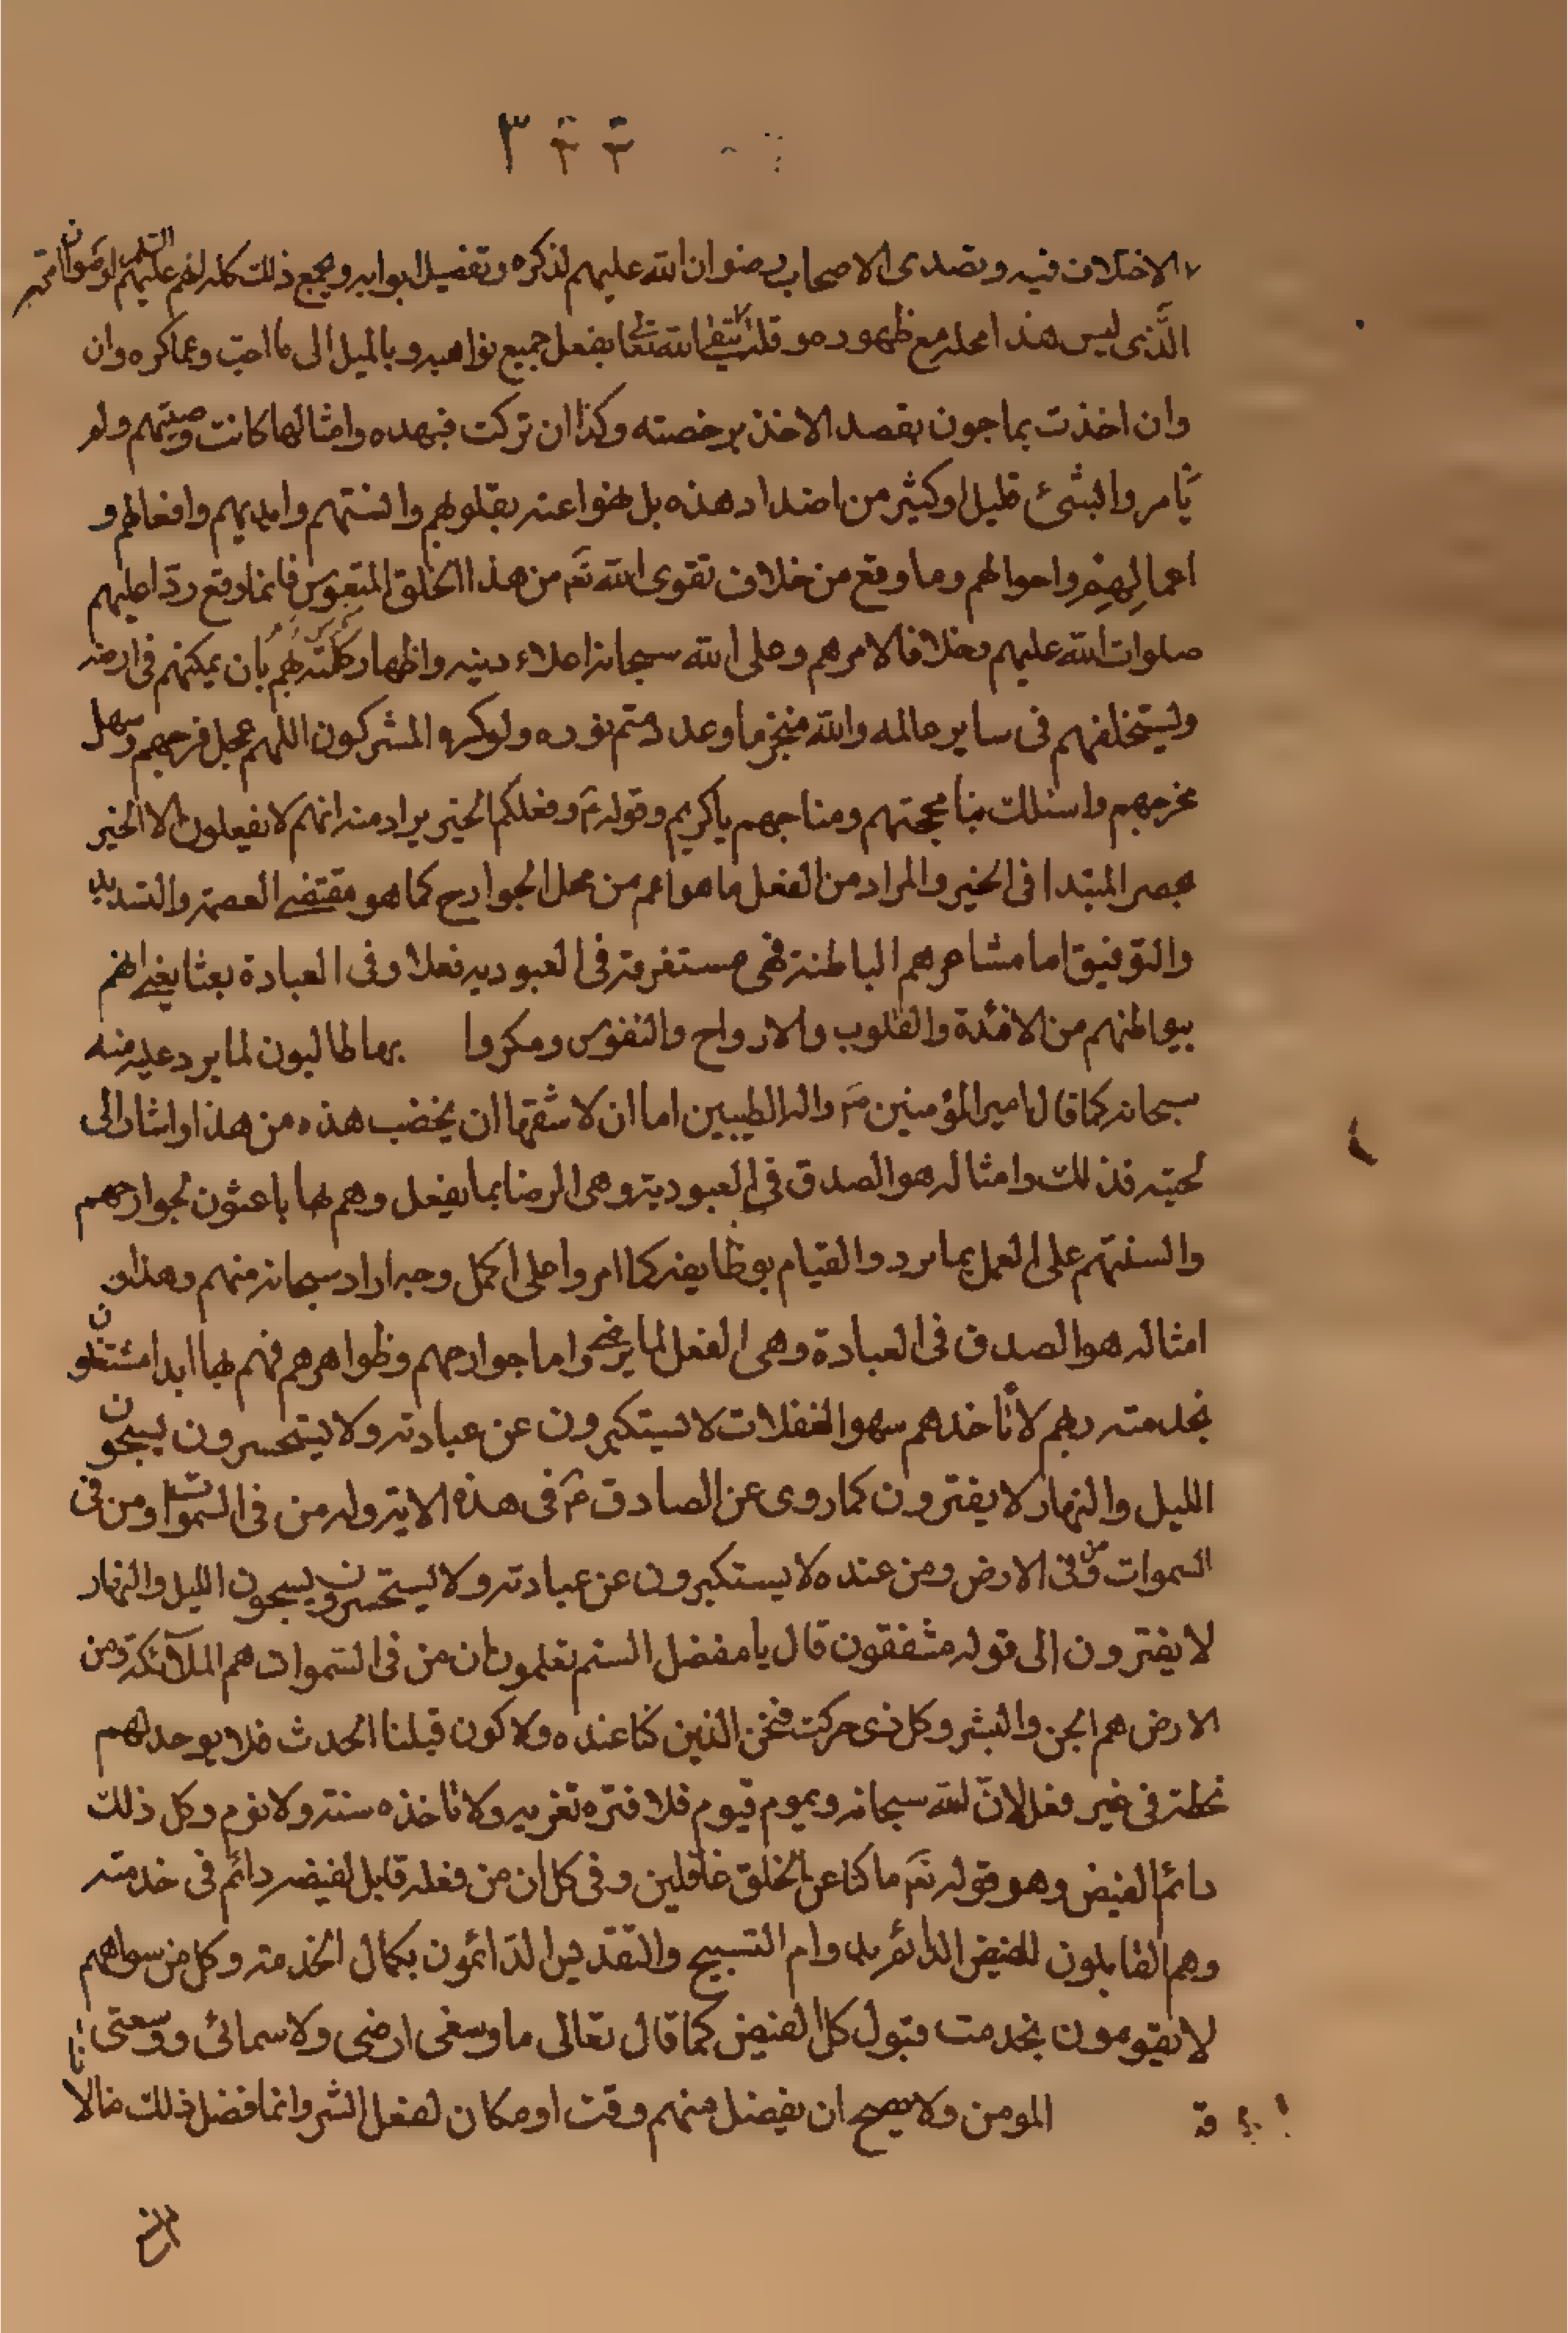 ٣٤٣
الاختلاف فيه وتصدى الاصحاب رضوان الله عليهم لذكره وتفصيل ابوابه ويجمع ذلك كله لهم عليهم السلم
الَّذى ليس هذا محله مع ظهوره وقلب الله تعا بفعل جميع نواهيه وبالميل الى ما احب وعما كره وان
وان اخذت بما جون بقصد الاخذ برخصته وكذا ان تركت فبهده وامثالها كانت وصيتهم ولم
يَأمروا لبشئ قليل او كثير من اضداد هذه بل نهوا عنه بقلوبهم والسنتهم وايديهم وافعالهم و
اعمالهم واحوالهم وما وقع من خلاف تقوى الله تع من هذا الخلق المتعوس فانما وقع ردّا عليهم
صلوات الله عليهم وخلافا لامرهم وعلى الله سبحانه اعلاء دينه واظهار كلمته بهم بأن يمكنهم فى ارضه
وليستخلفهم فى ساير عالمه والله منجز ما وعد ومتم نوره ولو كره المشركون اللهم عجل فرجهم وسهل
مخرجهم واسلك بنا محجتهم ومناهجهم يا كريم وقوله ع وفعلكم الخير يراد منه انهم لا يفعلون الا الخير
بحصر المبتدا فى الخبر والمراد من الفعل ما هو اعم من عمل الجوارح كما هو مقتضى العصمة والتسديد
والتوفيق اما مشاعرهم الباطنة فهى مستغرقة فى العبوديه فعلا وفى العبادة بعثا يعنى انهم
ببواطنهم من الافئدة والقلوب والارواح والنفوس ومكروا بها طالبون لما يرد عليه منه
سبحانه كما قال امير المؤمنين ع واله الطيبين اما ان لاشقها ان يخضب هذه من هذا واشار الى
لحيته فذلك وامثاله هو الصدق فى العبودية وهى الرضا بما يفعل وهم بها باعثون لجوارحهم
والسنتهم على العمل بما يرد والقيام بوظايفه كما امروا على اكمل وجه اراد سبحانه منهم وهذا و
امثاله هو الصدق فى العبادة وهى الفعل لما يرضى واما جوارحهم وظواهرهم فهم بها ابدا مشتغلون
بخدمته ربهم لا تأخذهم سهو الغفلات لا يستكبرون عن عبادته ولا يستحسرون يسبحون
الليل والنهار لا يفترون كما روى عن الصادق ع فى هذه الاية وله من فى السموات ومن فى
السموات ومن فى الارض ومن عنده لا يستكبرون عن عبادته ولا يستحسرون ويسبحون الليل والنهار
لا يفترون الى قوله مشفقون قال يا مفضل الستم تعلمون ان من فى السموات هم الملآئكة ومن
الارض هم الجن والبشر وكل ذى حركت فنحن الذين كنا عنده ولا كون قبلنا الحدث فلا يوجد لهم
لحظة فى غير فعل لانّ الله سبحانه ديموم قيوم فلا فتره تغريه ولا تاخذه سنة ولا نوم وكل ذلك
دائم الفيض وهو قوله تع ما كنا عن الخلق غافلين وفى كل ان من فعله قابل لفيضه دائم فى خدمته
وهم القابلون للفيض الدائم بدوام التسبيح والتقديس الدّائمون بكمال الخدمة وكل من سواهم
لا يقومون بخدمت قبول كل الفيض كما قال تعالى ما وسعنى ارضى ولا سمائى ووسعنى
المومن ولا يصح ان يفضل منهم وقت او مكان لفعل الشر وانما فضل ذلك